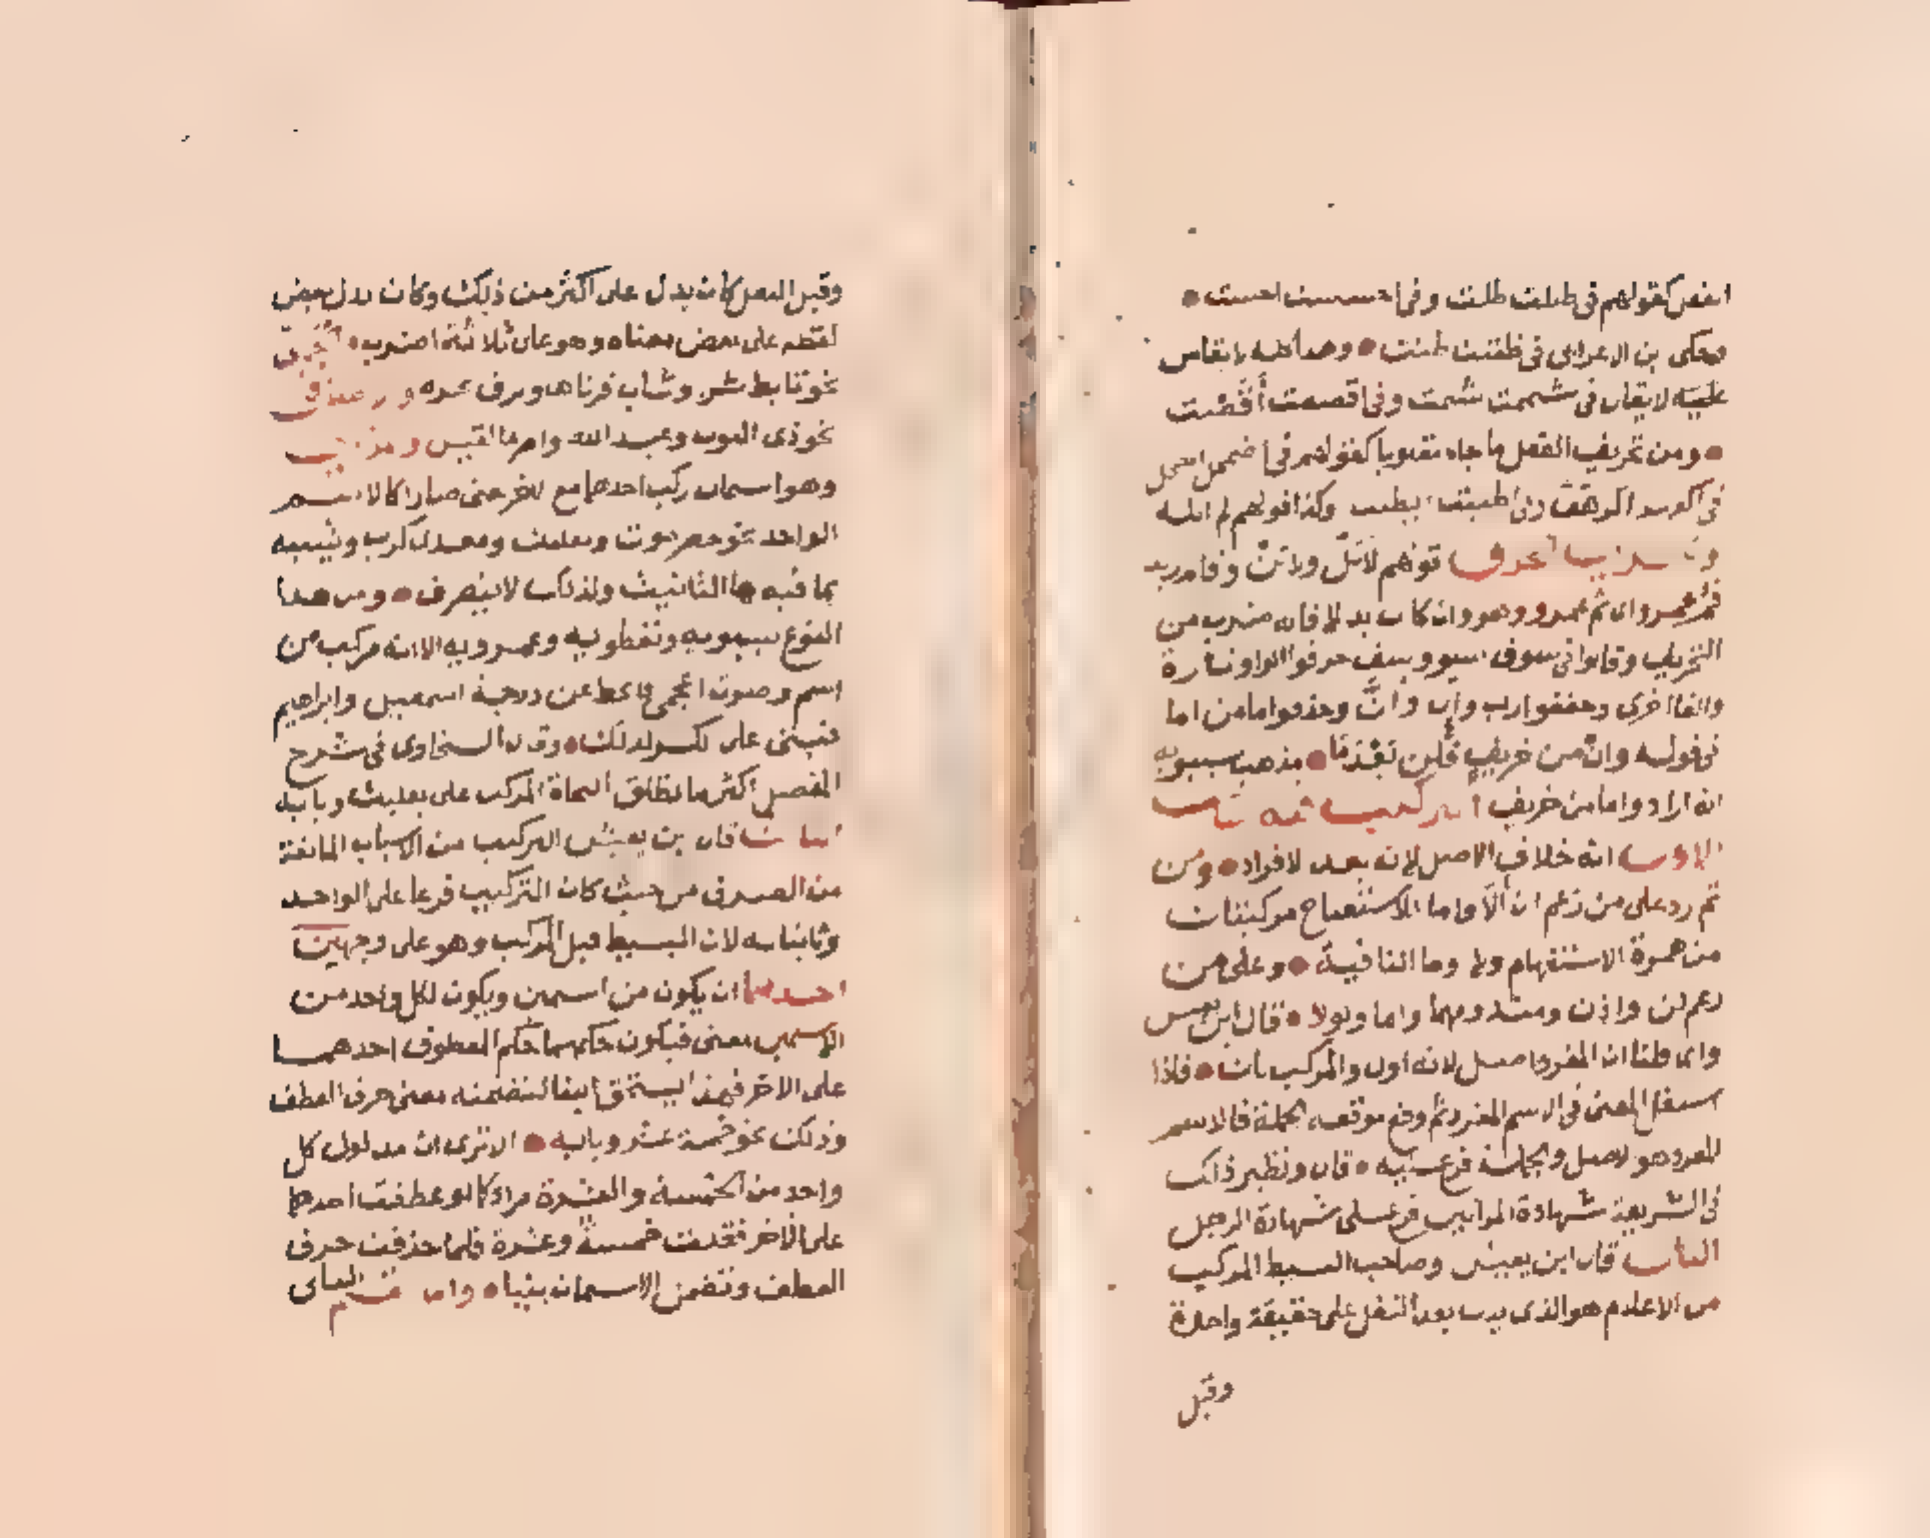 كقولهم فى ظللت ظلت وفى احسست احست
وحكى بن الاعرابى فى ظننت ظنت وهذا كله لا يقاس
عليه لا يقال فى شممت شمت وفى اقصصت أقصت
ومن تحريف الفعل ما جاء مقلوبا كقولهم فى اضمحل امضحل
وفى وكذا قولهم لم ابله
الحرف قولهم لابل ولابن وقام زيد
فم عمرو اى ثم عمرو وهو وان كان بدلا فانه ضرب من
التحريف وقالوا فى سوف سو وسف حرفوا الواو تارة
والفا اخرى وخففوا رب وان وانّ وحذفوا ما من اما
فى قوله وان من خريف فلن تعدما مذهب سيبويه
انه اراد واما من خريف التركيب فيه
الاولى انه خلاف الاصل لانه بعد الافراد ومن
ثم رد على من زعم ان ألا واما الاستفتاح مركبتان
من همزة الاستفهام ولا وما النافية وعلى من
زعم لن واذن ومنذ ومهما واما ولولا قال ابن يعيش
وانما قلنا ان المفرد اصل لانه اول والمركب ثان فاذا
استقل المعنى فى الاسم المفرد ثم وقع موقعه الجملة فالاسم
المفرد هو الاصل والجملة فرع عليه قال ونظير ذلك
فى الشريعة شهادة المراتين فرع على شهادة الرجل
الثانى قال ابن يعيش وصاحب البسيط المركب
من الاعلام هو الذى يدل بعد النقل على حقيقة واحدة
وقبل
وقبل النقل كان يدل على اكثر من ذلك وكان يدل بعض
لفظه على بعض معناه وهو على ثلاثة اضرب
نحو تابط شر وشاب قرناها وبرق نحره
نحو ذى النون وعبد الله وامرء القيس
وهو اسمان ركب احدهما مع الاخر حتى صارا كالاسم
الواحد نحو حضرموت وبعلبك ومعدى كرب وشبهه
بما فيه هاء التانيث ولذلك لا ينصرف ومن هذا
النوع سيبويه ونفطويه وعمرويه الا انه مركب من
اسم وصوت اعجمى فانحط عن درجة اسمعيل وابراهيم
فبنى على الكسر لذلك وقال السخاوى فى شرح
المفصل اكثر ما يطلق النحاة المركب على بعلبك وبابه
الثالث قال بن يعيش التركيب من الاسباب المانعة
من الصرف من حيث كان التركيب فرعا على الواحد
وثانيا له لان البسيط قبل المركب وهو على وجهين
احدهما ان يكون من اسمين ويكون لكل واحد من
الاسمين معنى فيكون حكمهما حكم المعطوف احدهما
على الاخر فهذا يستحق البنا لتضمنه معنى حرف العطف
وذلك نحو خمسة عشر وبابه الا ترى ان مدلول كل
واحد من الخمسة والعشرة مراد كما لو عطفت احدهما
على الاخر فقلت خمسة وعشرة فلما حذفت حرف
العطف وتضمن الاسمان بنيا واما القسم الثانى